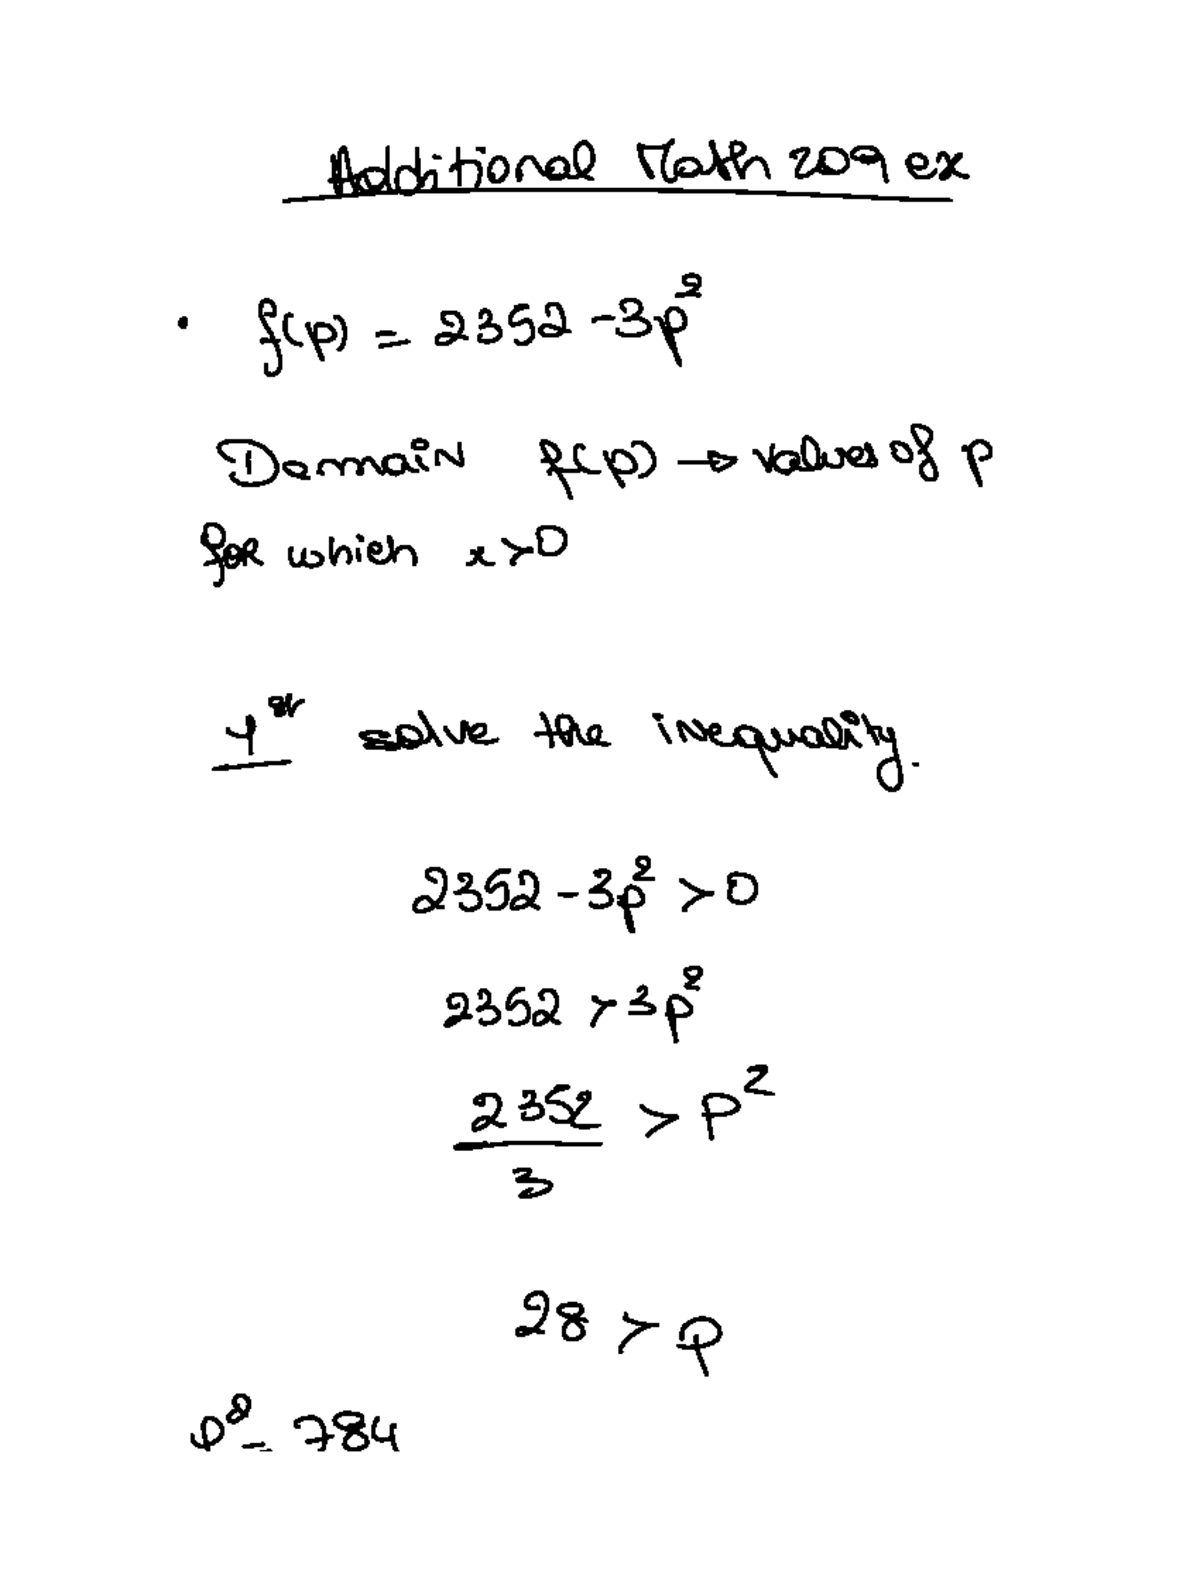 Additional Math 209 ex
• f(p) = 2352 - 3p²
Domain f(p) → values of p
for which x > 0
1st solve the inequality.
2352 - 3p² > 0
2352 > 3p²
2352 / 3 > p²
28 > p
p² = 784